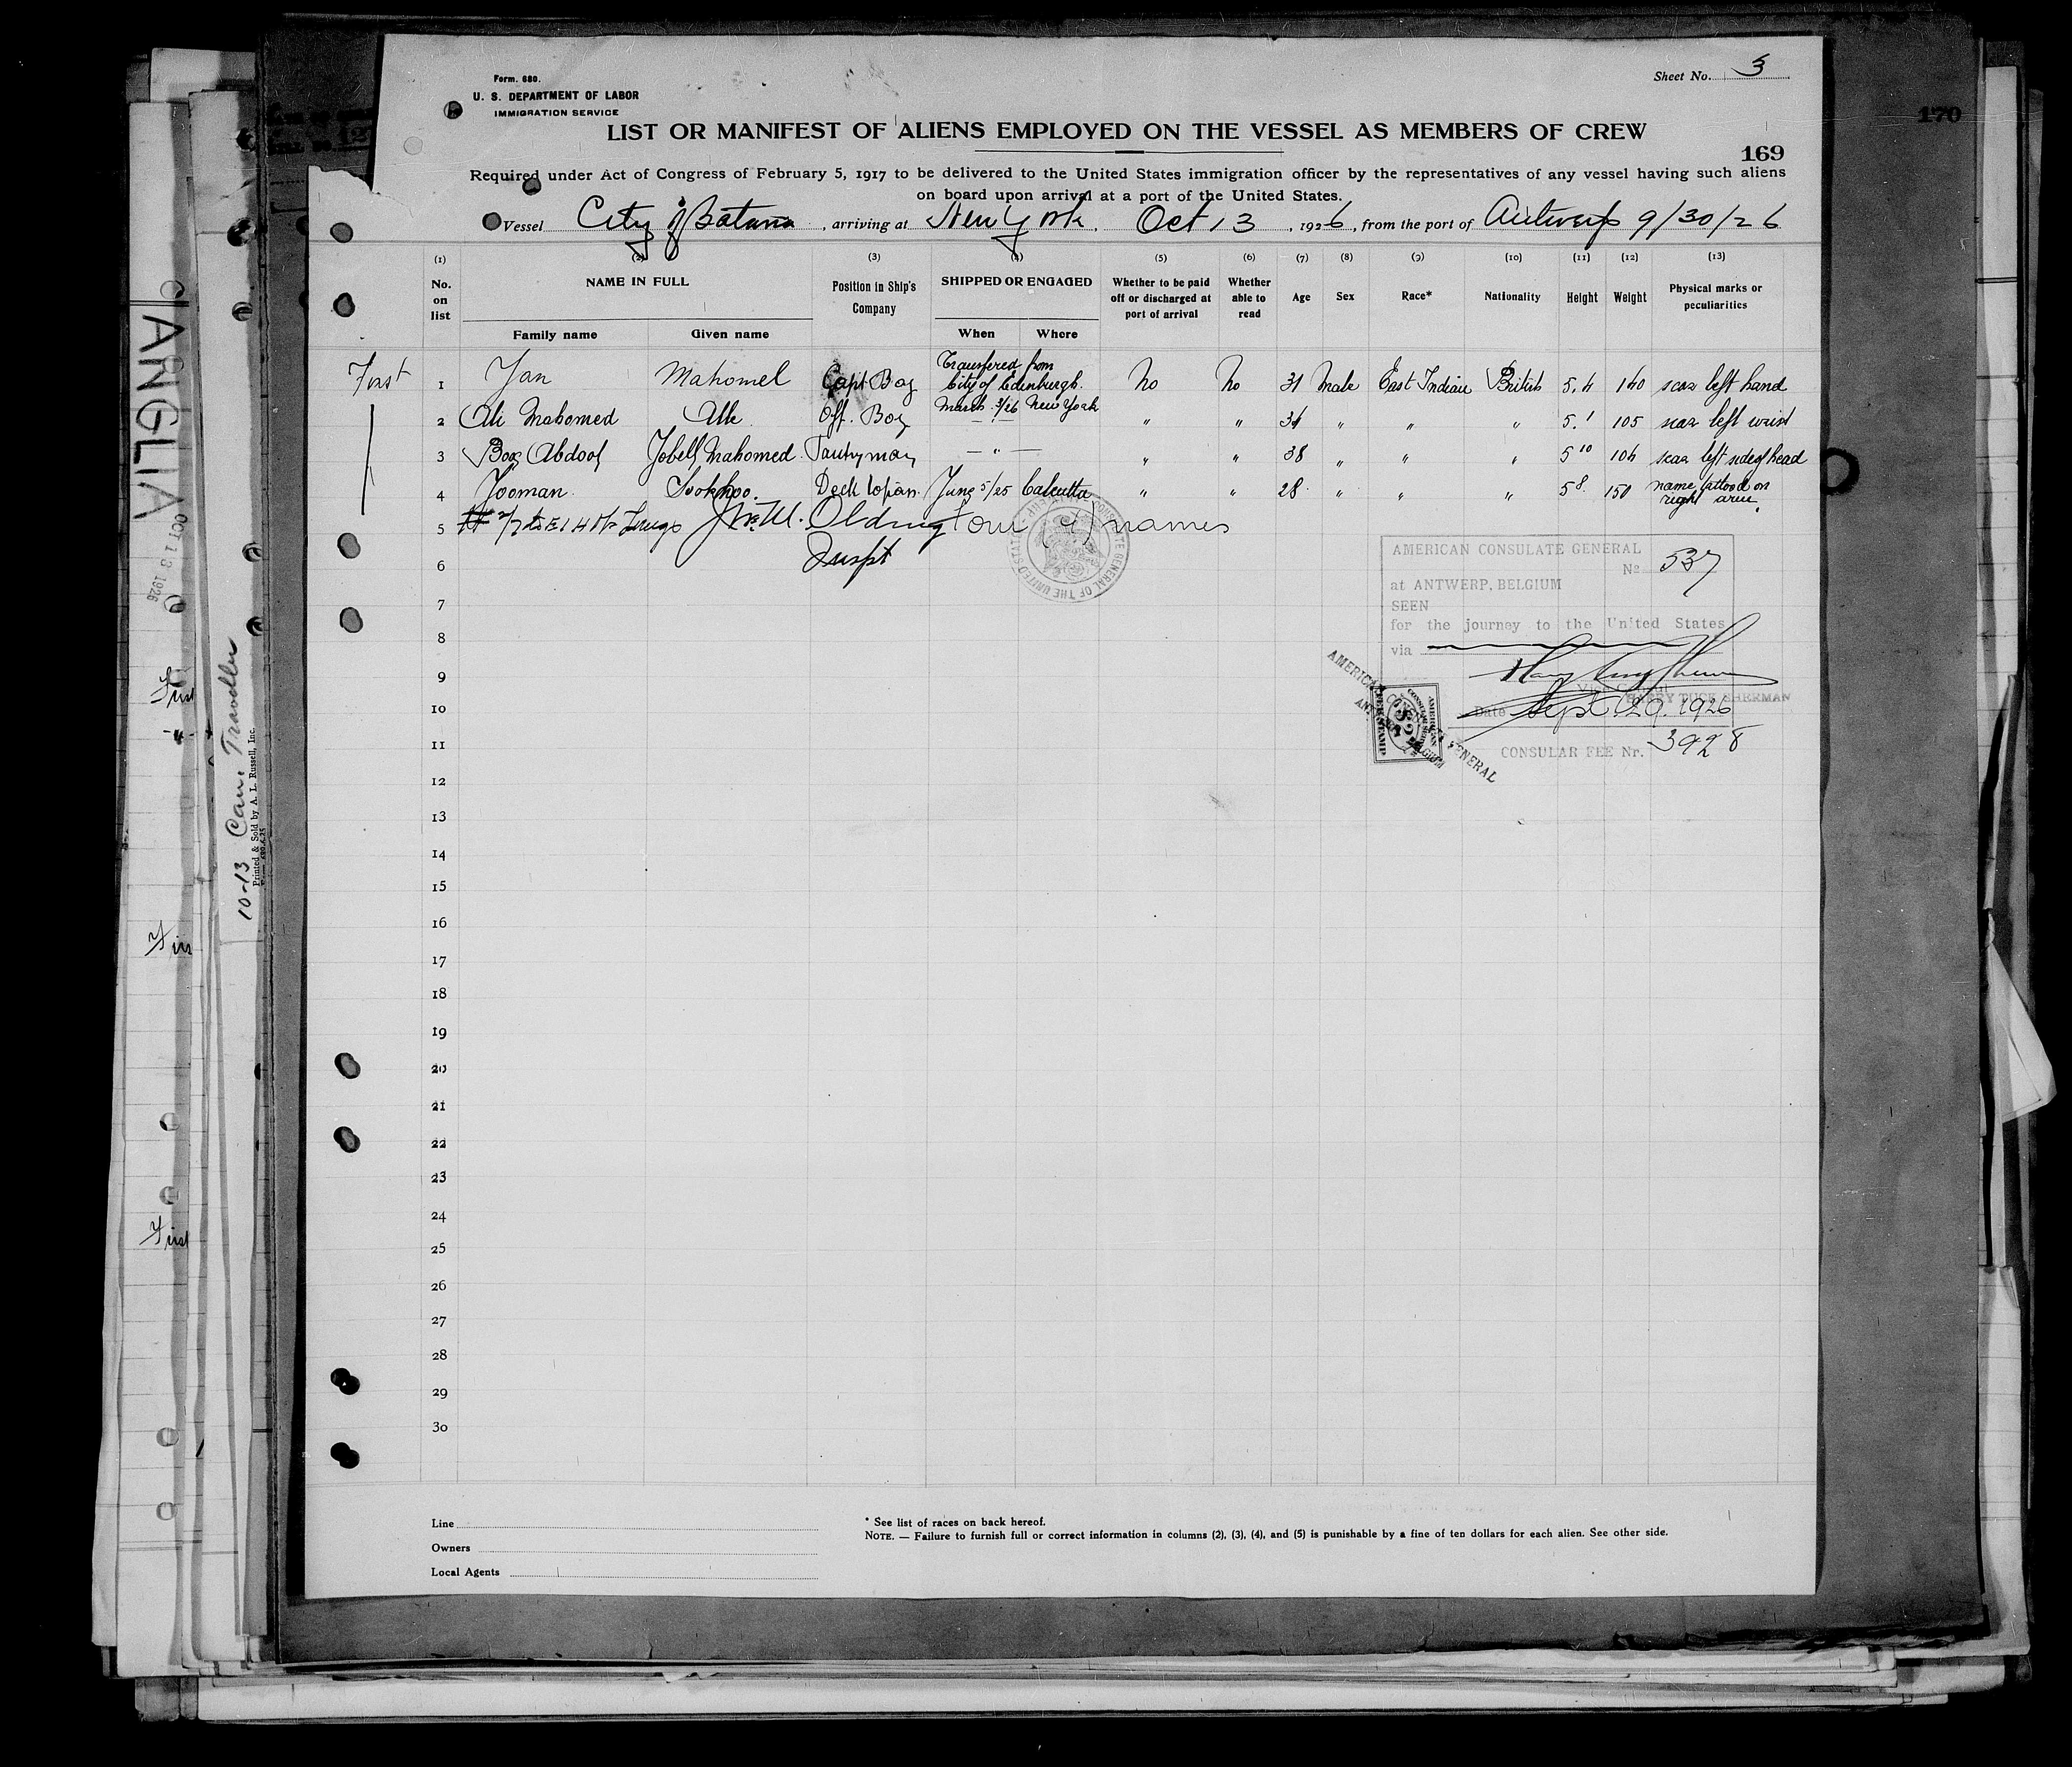 Form. 680.
U. S. DEPARTMENT OF LABOR
IMMIGRATION SERVICE
Sheet No. 3
170
LIST OR MANIFEST OF ALIENS EMPLOYED ON THE VESSEL AS MEMBERS OF CREW
169
Required under Act of Congress of February 5, 1917 to be delivered to the United States immigration officer by the representatives of any vessel having such aliens
on board upon arrival at a port of the United States.
Vessel City of Batavia, arriving at New York. Oct 13, 1926, from the port of Antwerp 9/30/26
(1) (2) (3) (4) (5) (6) (7) (8) (9) (10) (11) (12) (13)
No. on list NAME IN FULL Family name Given name Position in Ship's Company SHIPPED OR ENGAGED When Where Whether to be paid off or discharged at port of arrival Whether able to read Age Sex Race* Nationality Height Weight Physical marks or peculiarities
First 1 Jan Mahomel Capt Boy Transferred from City of Edinburgh. No No 31 Male East Indian British 5.4 140 scar left hand
2 Ali Mahomed Alk Off. Boy March 3/26 New York " " 31 " " " 5.1 105 scar left wrist
3 Box Abdool Jobell Mahomed Pantryman — " — " " 38 " " " 5 10 104 scar left side of head
4 Jooman Sookhoo. Deck Topian. June 5/25 Calcutta " " 28 " " " 5 8 150 name tattood on right arm.
5 Olding four (4) names
6 Inspt
7
8
9
10
11
12
13
14
15
16
17
18
19
20
21
22
23
24
25
26
27
28
29
30
AMERICAN CONSULATE GENERAL
No 537
at ANTWERP, BELGIUM
SEEN
for the journey to the United States
via
Vice Consul
HARRY TUCK SHERMAN
Date Sept. 29. 1926
CONSULAR FEE Nr. 3928
AMERICAN CONSULATE GENERAL
ANTWERP, BELGIUM
Line
Owners
Local Agents
* See list of races on back hereof.
NOTE. — Failure to furnish full or correct information in columns (2), (3), (4), and (5) is punishable by a fine of ten dollars for each alien. See other side.
ANGLIA
OCT 13 1926
10-13
Printed & Sold by A. L. Russell, Inc.
First
First
First